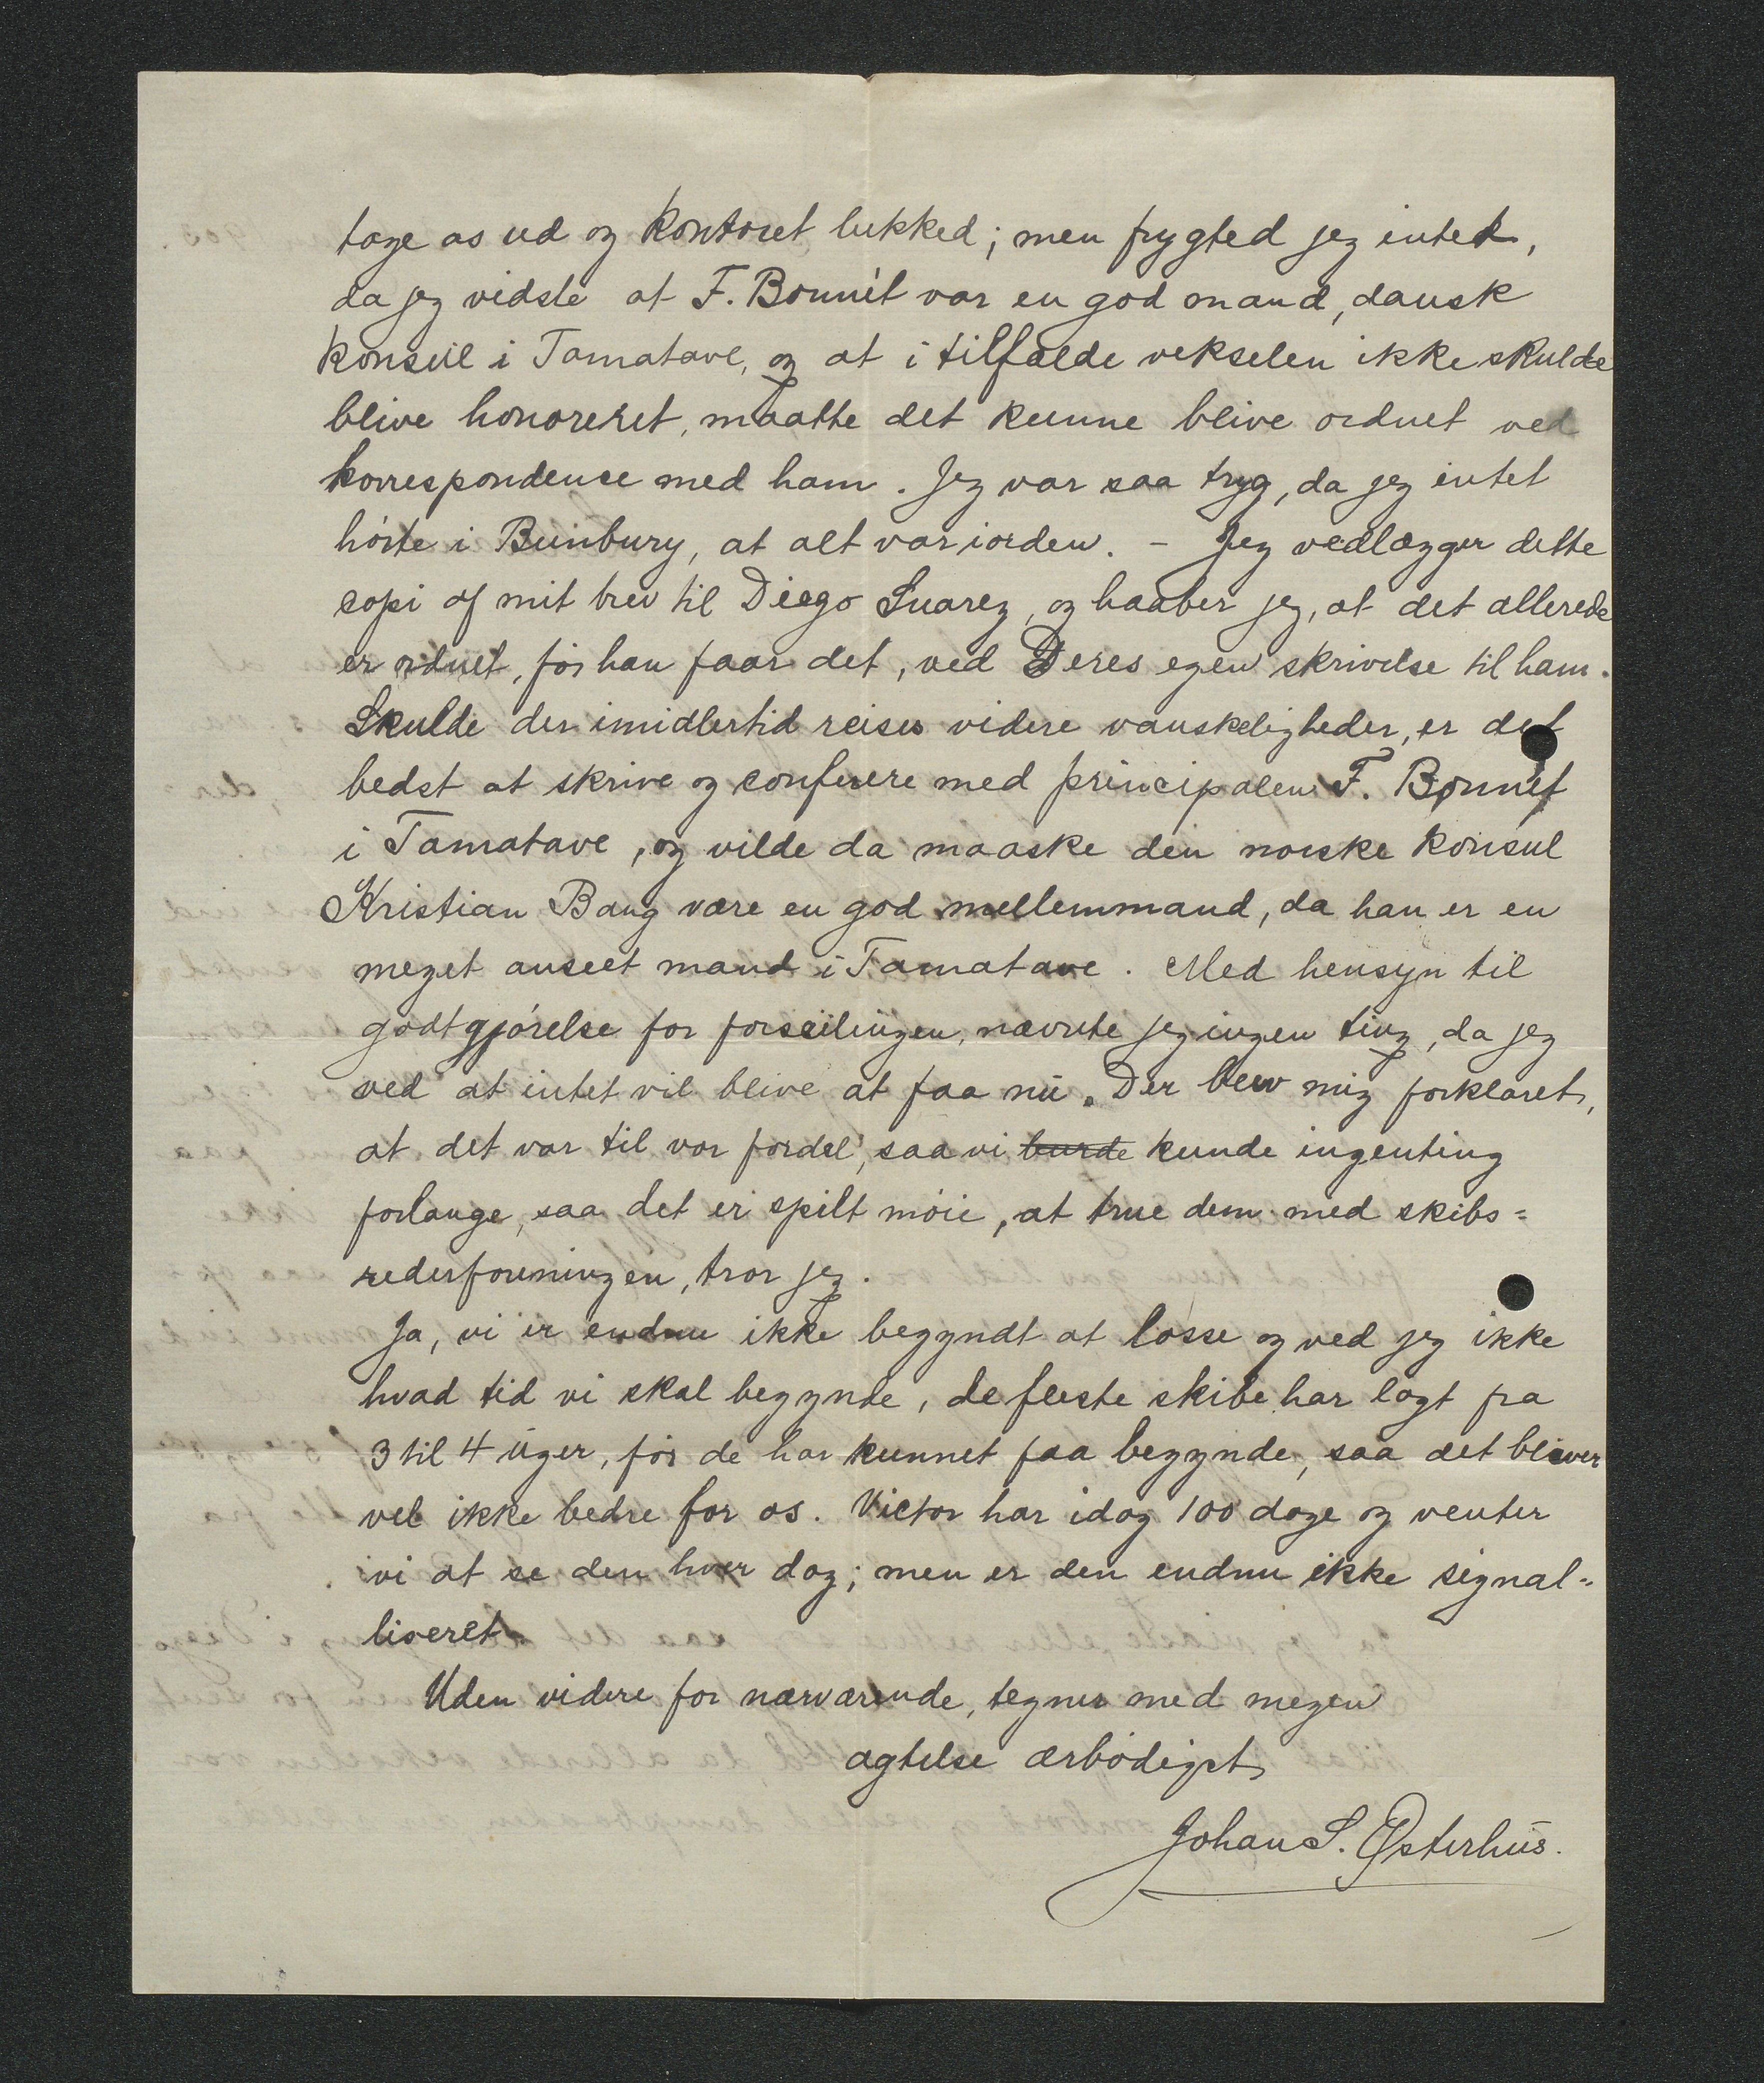 tage os ud og kontoret lukked; men frygted jeg intet,
da jeg vidste at F. Bonnét var en god mand, dansk
konsul i Tamatave, og at i tilfælde vekselen ikke skulde
blive honoreret, maatte det kunne blive ordnet ved
korrespondence med ham. Jeg var saa tryg, da jeg intet
hørte i Bunbury, at alt var iorden. - Jeg vedlægger dette
copi af mit brev til Diego Suarez, og haaber jeg, at det allerede
er ordnet, før han faar det, ved Deres egen skrivelse til ham.
Skulde der imidlertid reises videre vanskeligheder, er det
bedst at skrive og conferere med principalen F. Bonnét
i Tamatave, og vilde da maaske den norske konsul
Kristian Bang være en god mellemmand, da han er en
meget anseet mand i Tamatave. Med hensyn til
godtgjørelse for forseilingen, nævnte jeg ingen ting, da jeg
ved at intet vil blive at faa nu. Der blev mig forklaret,
at det var til vor fordel, saa vi burde kunde ingenting
forlange, saa det er spilt møie, at true dem med skibs=
rederforeningen, tror jeg.
Ja, vi er endnu ikke begyndt at losse og ved jeg ikke
hvad tid vi skal begynde, de fleste skibe har lagt fra
3 til 4 uger, før de har kunnet faa begynde, saa det bliver
vel ikke bedre for os. Victor har idag 100 dage og venter
vi at se den hver dag; men er den endnu ikke signal=
liseret.
Uden videre for nærværende, tegner med megen
agtelse ærbødigst
Johan S. Østerhus.